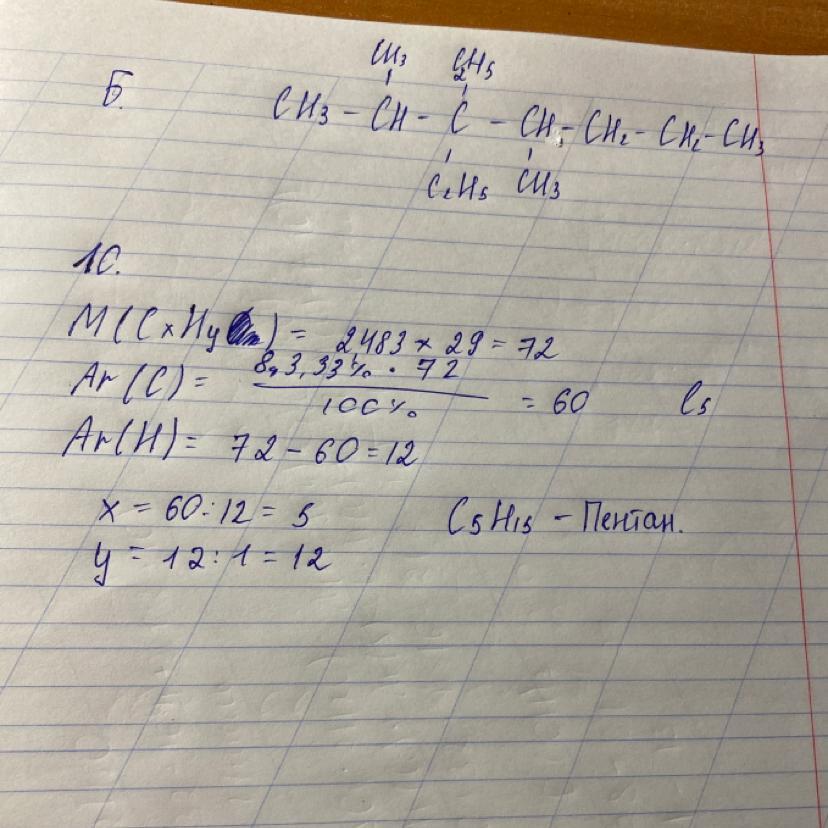 CH3 C2H5
Б. CH3 - CH - C - CH - CH2 - CH2 - CH3
C2H5 CH3
10.
M(CxHy) = 2,483 × 29 = 72
Ar(C) = 83,33% · 72 / 100% = 60 C5
Ar(H) = 72 - 60 = 12
x = 60 : 12 = 5 C5H15 - Пентан.
y = 12 : 1 = 12